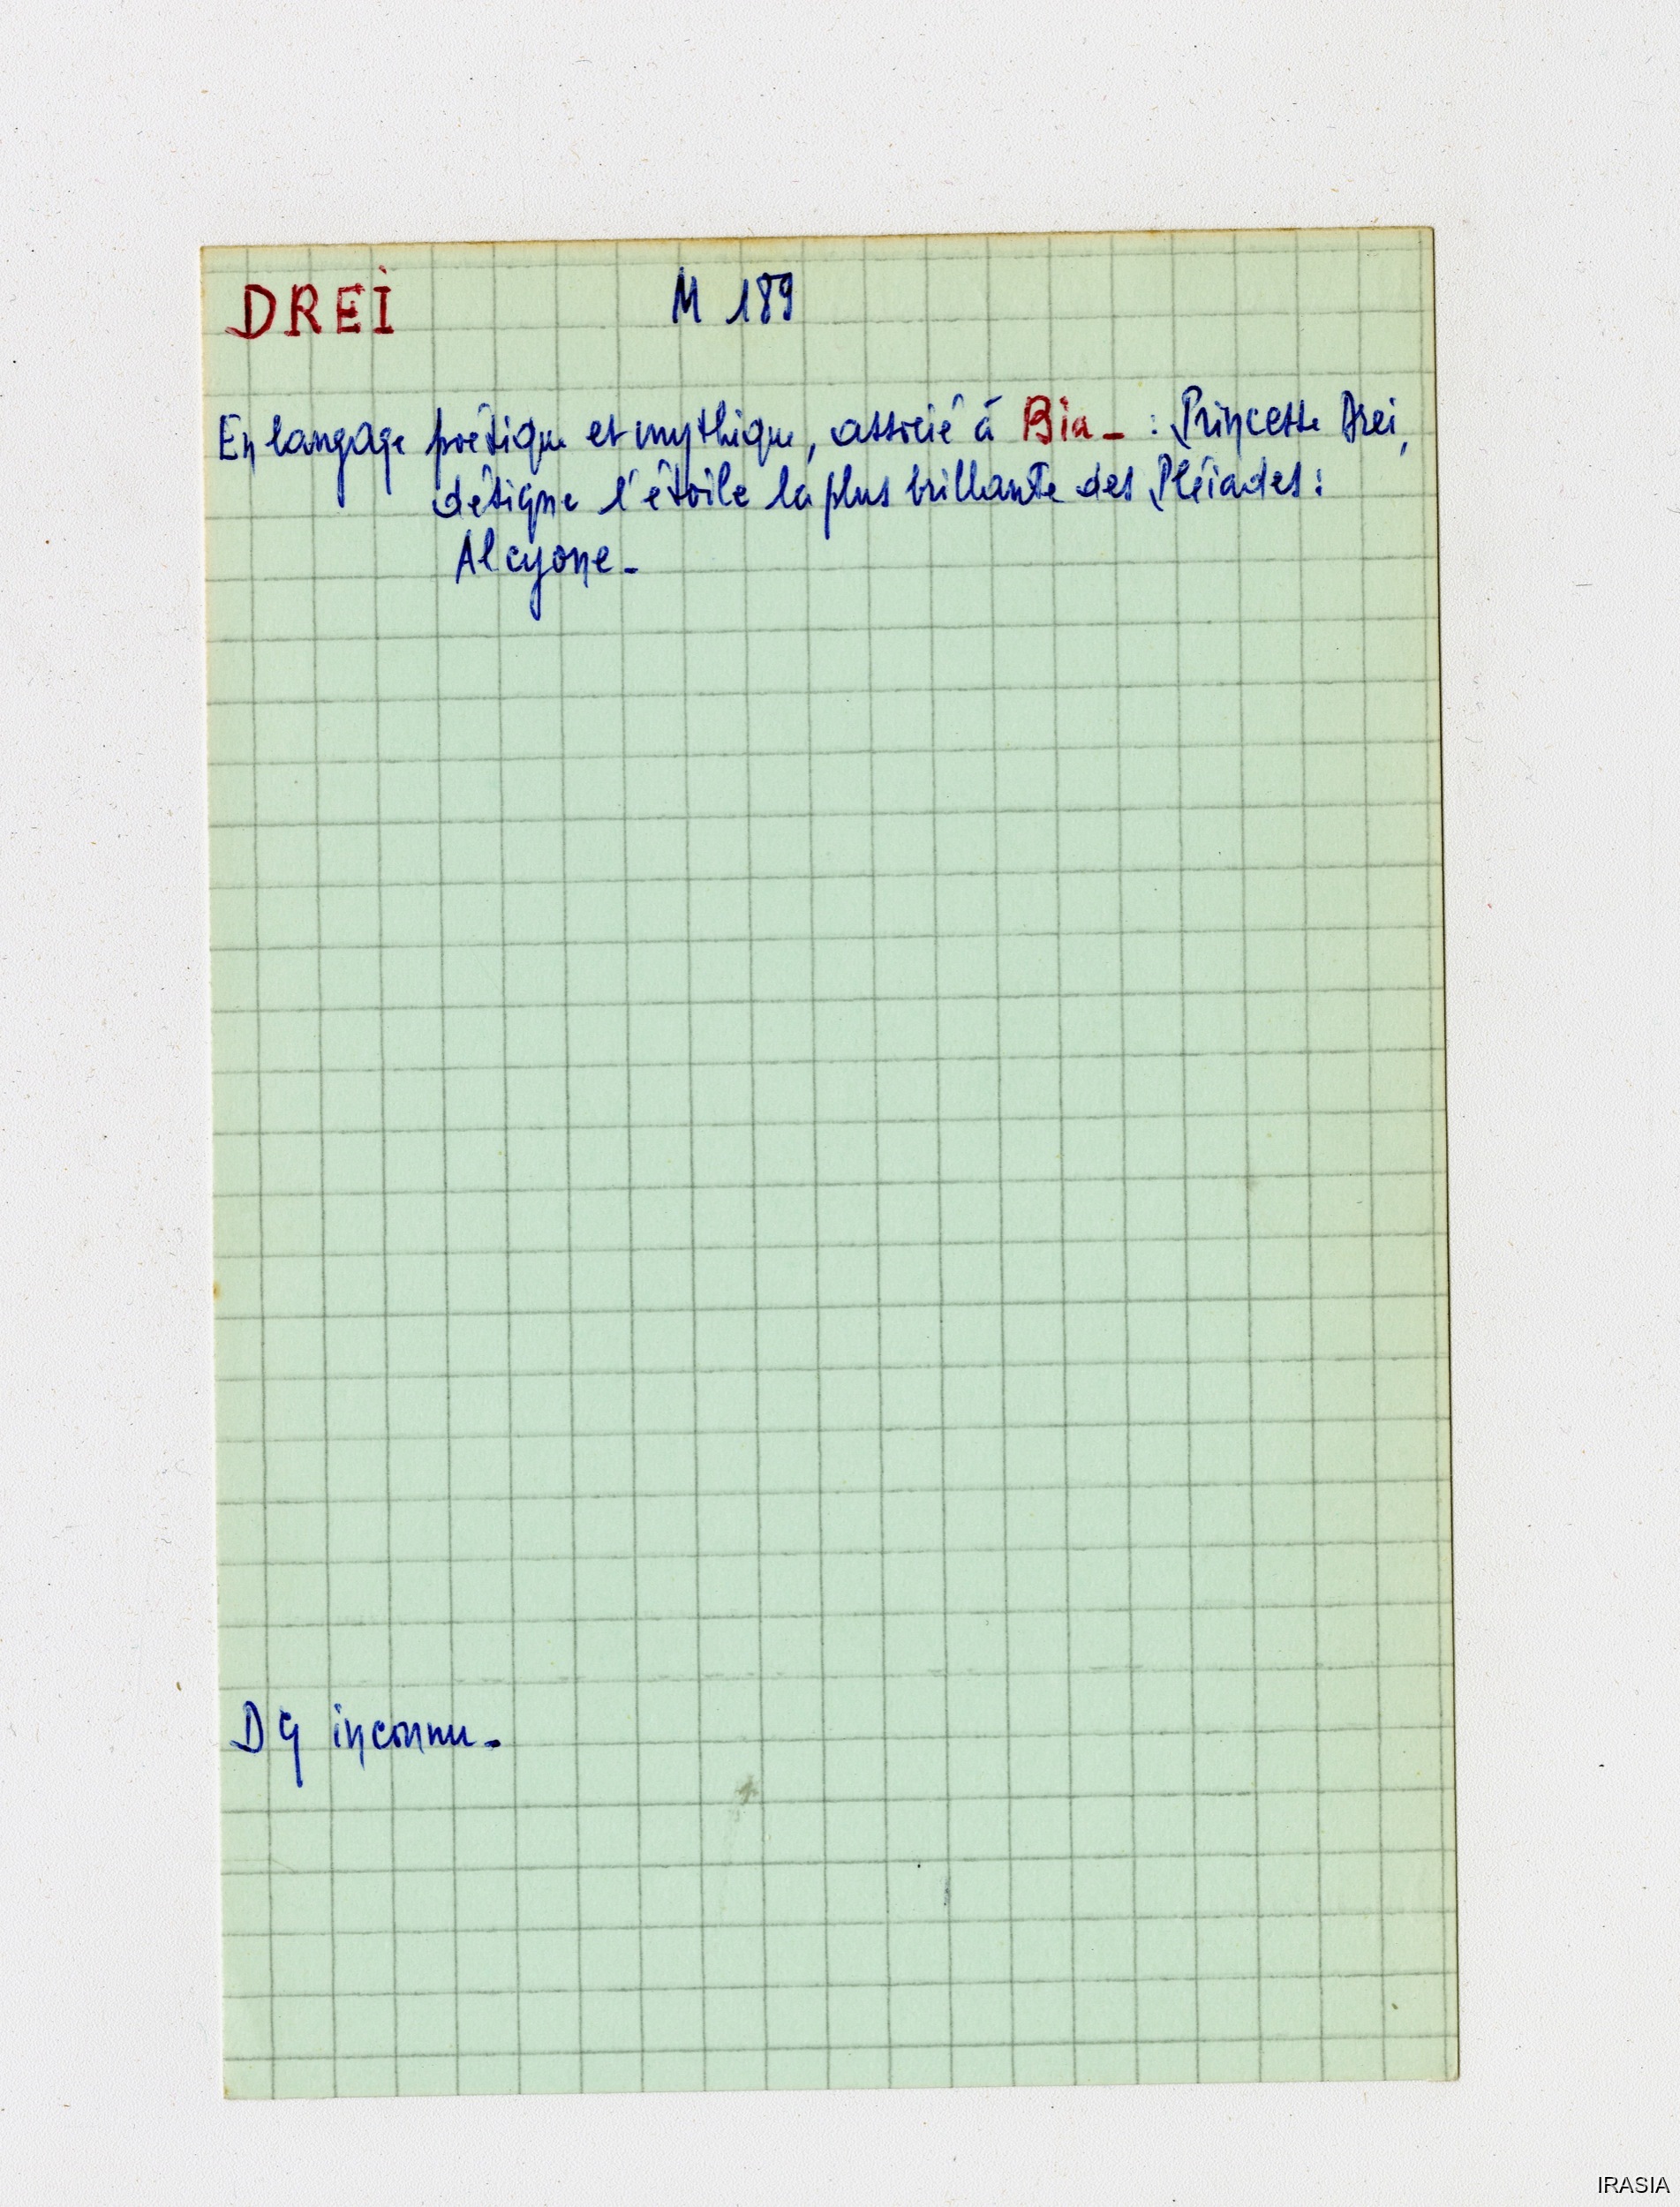 DREI M 189
En langage poétique et mythique, associé à Bia_ : Princesse Drei,
désigne l'étoile la plus brillante des Pléiades :
Alcyone_
DG inconnu_
IRASIA